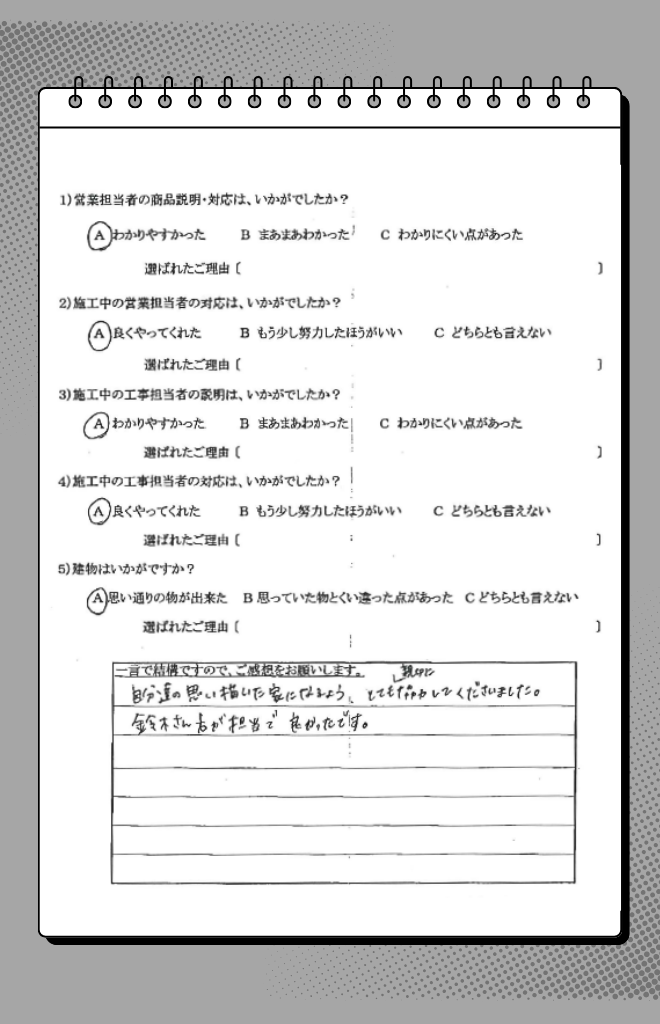 1)営業担当者の商品説明・対応は、いかがでしたか？
A わかりやすかった B まあまあわかった C わかりにくい点があった
選ばれたご理由〔 〕
2)施工中の営業担当者の対応は、いかがでしたか？
A 良くやってくれた B もう少し努力したほうがいい C どちらとも言えない
選ばれたご理由〔 〕
3)施工中の工事担当者の説明は、いかがでしたか？
A わかりやすかった B まあまあわかった C わかりにくい点があった
選ばれたご理由〔 〕
4)施工中の工事担当者の対応は、いかがでしたか？
A 良くやってくれた B もう少し努力したほうがいい C どちらとも言えない
選ばれたご理由〔 〕
5)建物はいかがですか？
A 思い通りの物が出来た B 思っていた物とくい違った点があった C どちらとも言えない
選ばれたご理由〔 〕
一言で結構ですので、ご感想をお願いします。
親切に
自分達の思い描いた家になるよう、とても協力してくださいました。
鈴木さん が担当で良かったです。